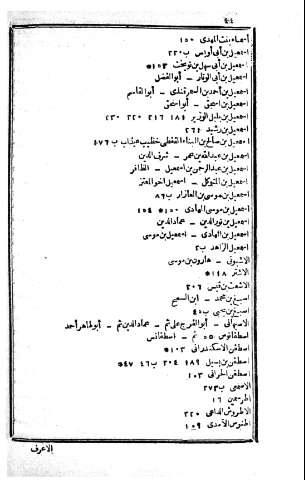 ٤٤
أسماء بنت المهدي ١٥٠
اسمعيل بن أبي أويس ب ٢٢٠
اسمعيل بن أبي سهل بن نوبخت ١٥٣*
اسمعيل بن أبي الوقار — أبو الفضل
اسمعيل بن أحمد بن السمرقندي — أبو القاسم
اسمعيل بن اسحق — أبو اسحق
اسمعيل بن بلبل الوزير ١٨٤ ٢١٦ ٢٢٠ ٢٣٠
اسمعيل بن رشيد ٢٦١
اسمعيل بن صالح بن البناء القفطي خطيب عيذاب ب ٤٧٦
اسمعيل بن عبد الله بن عمر — شرف الدين
اسمعيل بن عبد الرحمن بن اسمعيل — الظافر
اسمعيل بن المتوكل — اسمعيل اخو المعتز
اسمعيل بن موسى بن العازار ب ٨٦
اسمعيل بن موسى الهادي ١٥٠* ١٥٤
اسمعيل بن نور الدين — عماد الدين
اسمعيل بن الهادي — اسمعيل بن موسى
اسمعيل الزاهد ب ٢
الاشبوني — هارون بن موسى
الاشتر ١٤٨*
الاشعث بن قيس ٢٠٦
اصبغ بن محمد — ابن السمح
اصبغ بن يحيى ب ٤٥
الاصبهاني — أبو الفرج علي ثم — عماد الدين ثم — أبو طاهر أحمد
اصطفانوس ٥٥ ثم — اصطفانس
اصطفن الاسكندراني ١٠٣*
اصطفن بن بسيل ١٨٩ ٢٠٤ ب ٤٦ ٤٧*
اصطفن الحراني ١٠٣
الاصمعي ب ٢٧٣
١٦
الاطروش الداعي ٢٢٠
الآمدي ١٥٩
الاعرف